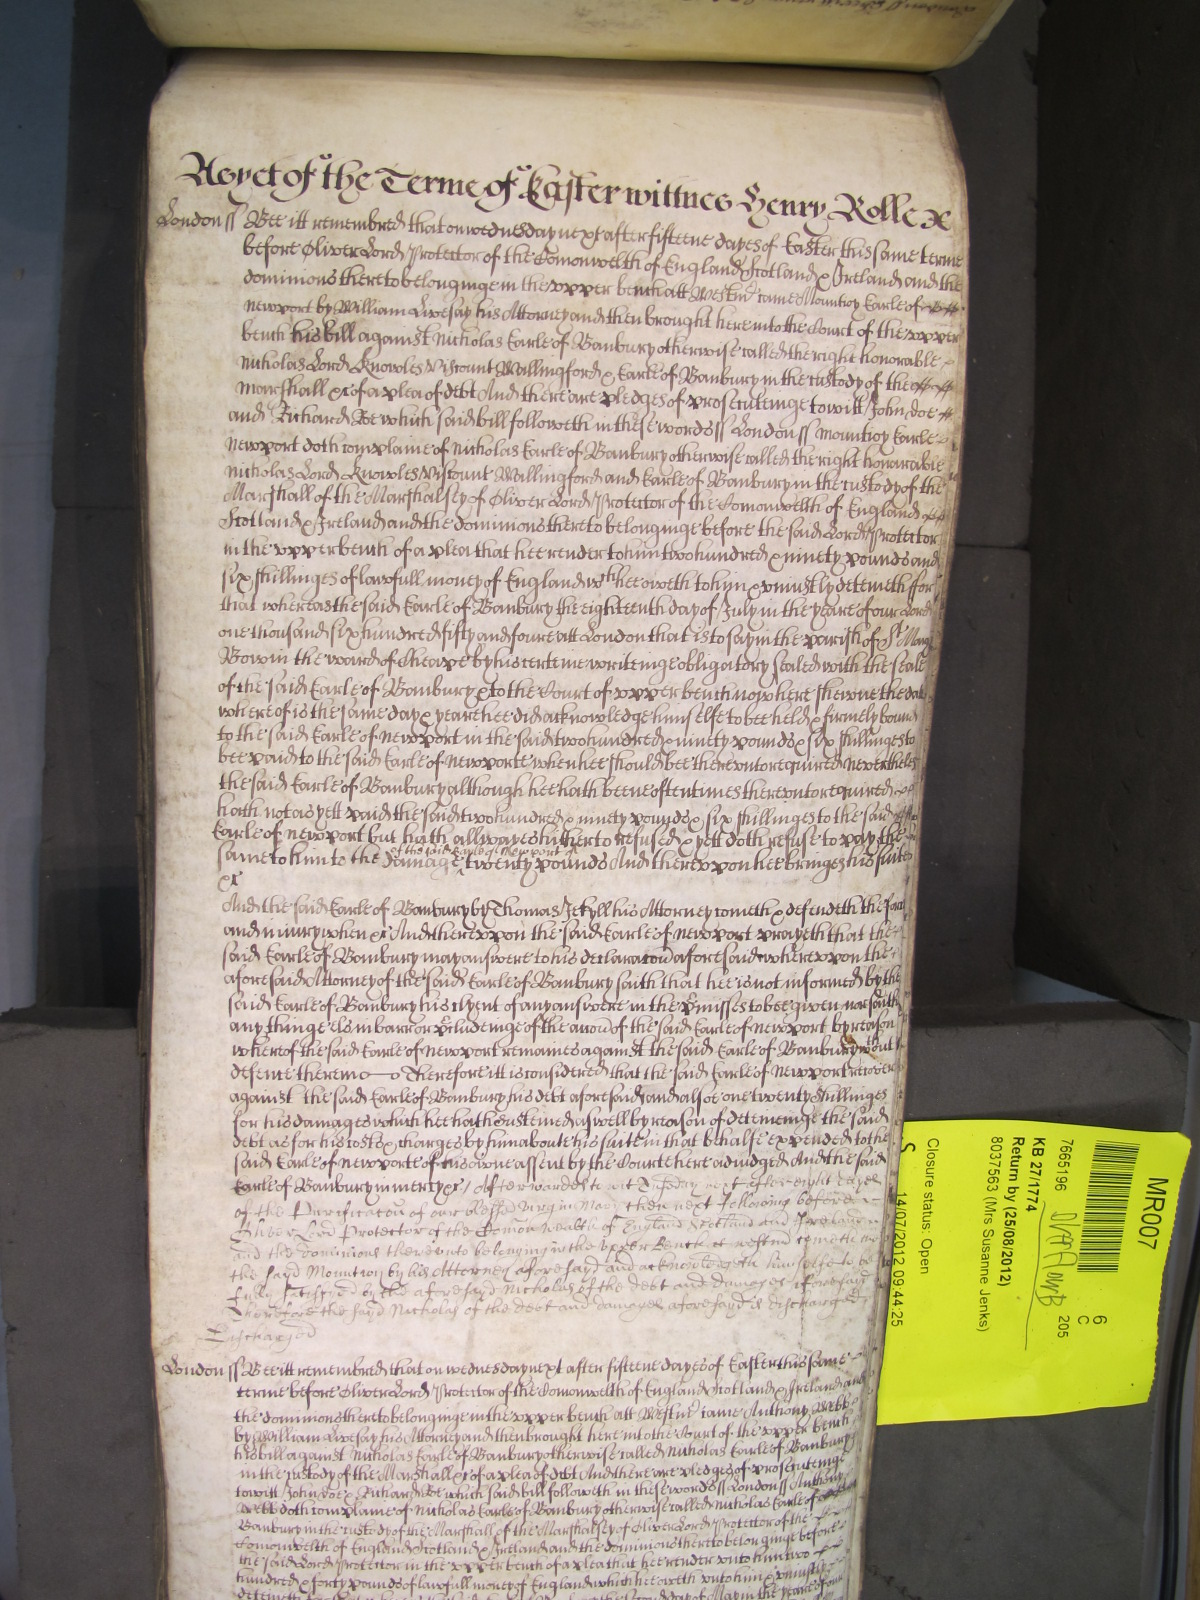 As yet of the Terme of Easter wittnes Henry Rolle &c
London ss Bee itt remembred that on wednesday next after fifteene dayes of Easter this same terme
before Oliver Lord Protector of the Comonwelth of England Scotland & Ireland and the
dominions thereto belonginge in the upper bench att Westmr came Mountioy Earle of
newport by William Livesay his Attorney and then brought here into the Court of the upper
bench his bill against Nicholas Earle of Banbury otherwise called the right honorable
Nicholas Lord Knowles Viscount Wallingford & Earle of Banbury in the custody of the
Marshall &c of a plea of debt And there are pledges of prosecuteinge to witt John Doe
and Richard Roe which said bill followeth in these words ss London ss Mountioy Earle
newport doth complaine of Nicholas Earle of Banbury otherwise called the right honorable
Nicholas Lord Knowles Viscount Wallingford and Earle of Banbury in the custody of the
Marshall of the Marshalsey of Oliver Lord Protector of the Comonwelth of England
Scotland & Ireland and the dominions thereto belonginge before the said Lord Protector
in the upper bench of a plea that hee render to him two hundred & ninety pounds and
six shillinges of lawfull money of England wch hee oweth to him & uniustly deteineth for
that whereas the said Earle of Banbury the eighteenth day of July in the yeare of our Lord
one thousand six hundred fifty and foure att London that is to say in the parish of St Mary
Bow in the ward of Cheape by his certeine writeinge obligatory sealed with the seale
of the said Earle of Banbury & to the Court of upper bench now here shewne the date
whereof is the same day & yeare hee did acknowledge himselfe to bee held & firmely bound
to the said Earle of newport in the said two hundred & ninety pounds & six shillinges to
bee paid to the said Earle of newporte when hee should bee thereunto required Neverthelesse
the said Earle of Banbury although hee hath beene oftentimes thereunto required
hath not as yett paid the said two hundred & ninety pounds & six shillinges to the said
Earle of newport but hath allwayes hitherto refused & yett doth refuse to pay the
same to him to the damage of the said Earle of Newport of twenty pounds And thereupon hee bringes his suite
&c
And the said Earle of Banbury by Thomas Jekyll his Attorney cometh & defendeth the force
and iniury when &c And thereupon the said Earle of newport prayeth that the
said Earle of Banbury may answere to his declaracon aforesaid whereupon the
aforesaid Attorney of the said Earle of Banbury saith that hee is not informed by the
said Earle of Banbury his clyent of any answere in the pmisses to bee given nor saith
any thinge els in barr or pcludeinge of the accon of the said Earle of newport by reason
whereof the said Earle of Newport remaines against the said Earle of Banbury wthout
defence therein Therefore itt is considered that the said Earle of Newport recover
against the said Earle of Banbury his debt aforesaid and alsoe one twenty shillinges
for his damages which hee hath susteined aswell by reason of deteineinge the said
debt as for his costs & charges by him aboute his suite in that behalfe expended to the
said Earle of Newporte of his owne assent by the Courte here adiudged And the said
Earle of Banbury in mercy &c Afterwards to wit next after eight dayes
of the Purificacon of our blessed virgin Mary then next following before
Oliver Lord Protector of the Comonwealth of England Scotland and Ireland
and the dominions thereunto belonging in the Upper Bench att Westmr cometh
the sayd Mountioy by his Attorney aforesayd and acknowledgeth himselfe to be
fully satisfyed by the aforesayd Nicholas of the debt and damages aforesayd
Therefore the sayd Nicholas of the debt and damages aforesayd is discharged
Discharged
London ss Bee itt remembred that on wednesday next after fifteene dayes of Easter this same
terme before Oliver Lord Protector of the Comonwelth of England Scotland & Ireland and
the dominions thereto belonginge in the upper bench att Westmr came Anthony Webb
by William Livesay his Attorney and then brought here into the Court of the upper bench
his bill against Nicholas Earle of Banbury otherwise called Nicholas Earle of Banbury
in the custody of the Marshall &c of a plea of debt And there are pledges of prosecuteinge
to witt John Doe & Richard Roe which said bill followeth in these words ss London ss Anthony
Webb doth complaine of Nicholas Earle of Banbury otherwise called Nicholas Earle of
Banbury in the custody of the Marshall of the Marshalsey of Oliver Lord Protector of the
Comonwelth of England Scotland & Ireland and the dominions thereto belonginge before
the said Lord Protector in the upper bench of a plea that hee render unto him two
hundred & forty pounds of lawfull money of England which hee oweth unto him & uniustly
MR007
6
C
205
7665196
KB 27/1774
Return by (25/08/2012)
8037563 (Mrs Susanne Jenks)
Closure status: Open
S
14/07/2012 09:44:25